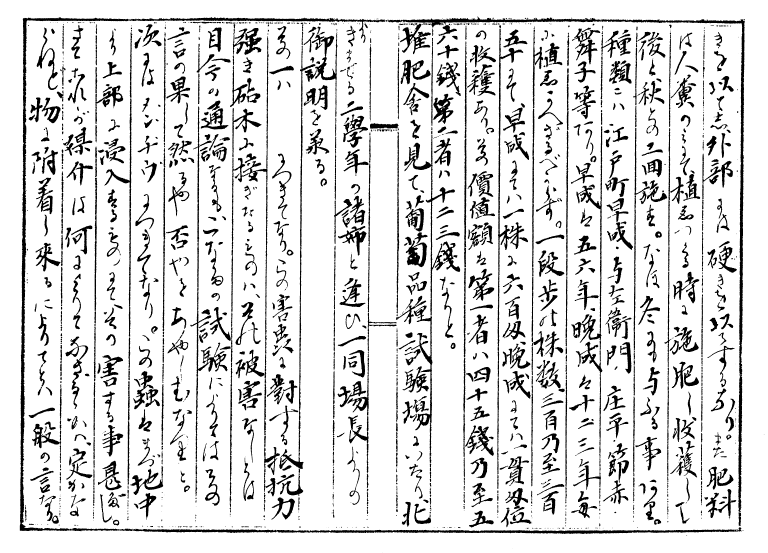 きを以てし外部には硬きを以てするなり。また肥料
は人糞のみにて植ゑつくる時に施肥し收穫して
後と秋との二回施す。なほ冬にも与ふる事あり。
種類には江戸町早成、与左衛門、庄平、節赤、
舞子等なり。早成は五六年、晩成は十二三年毎
に植ゑかへざるべからず。一段歩の株数、三百乃至三百
五十にて、早成にては一株に六百匁、晩成にては一貫匁位
の收穫あり。その價値額は第一者ハ四十五錢乃至五
六十錢、第二者ハ十二三錢なりと。
堆肥舎を見て、葡萄品種試験場にいたり、北
きませる二學年の諸姉と逢ひ、一同場長よりの
御説明を承る。
その一ハ つきてなり。この害虫に對する抵抗力
強き砧木に接ぎたるものハ、その被害なしとは
目今の通論なるも、の試験によればその
言の果して然るや否やをあやしむなりと。
次は につきてなり。この蟲はまづ地中
より上部に浸入するものにてその害する事甚し。
まそれが媒介は何によりてなすものか、定かな
らねど、物に附着し來るによりてとハ一般の言なり。